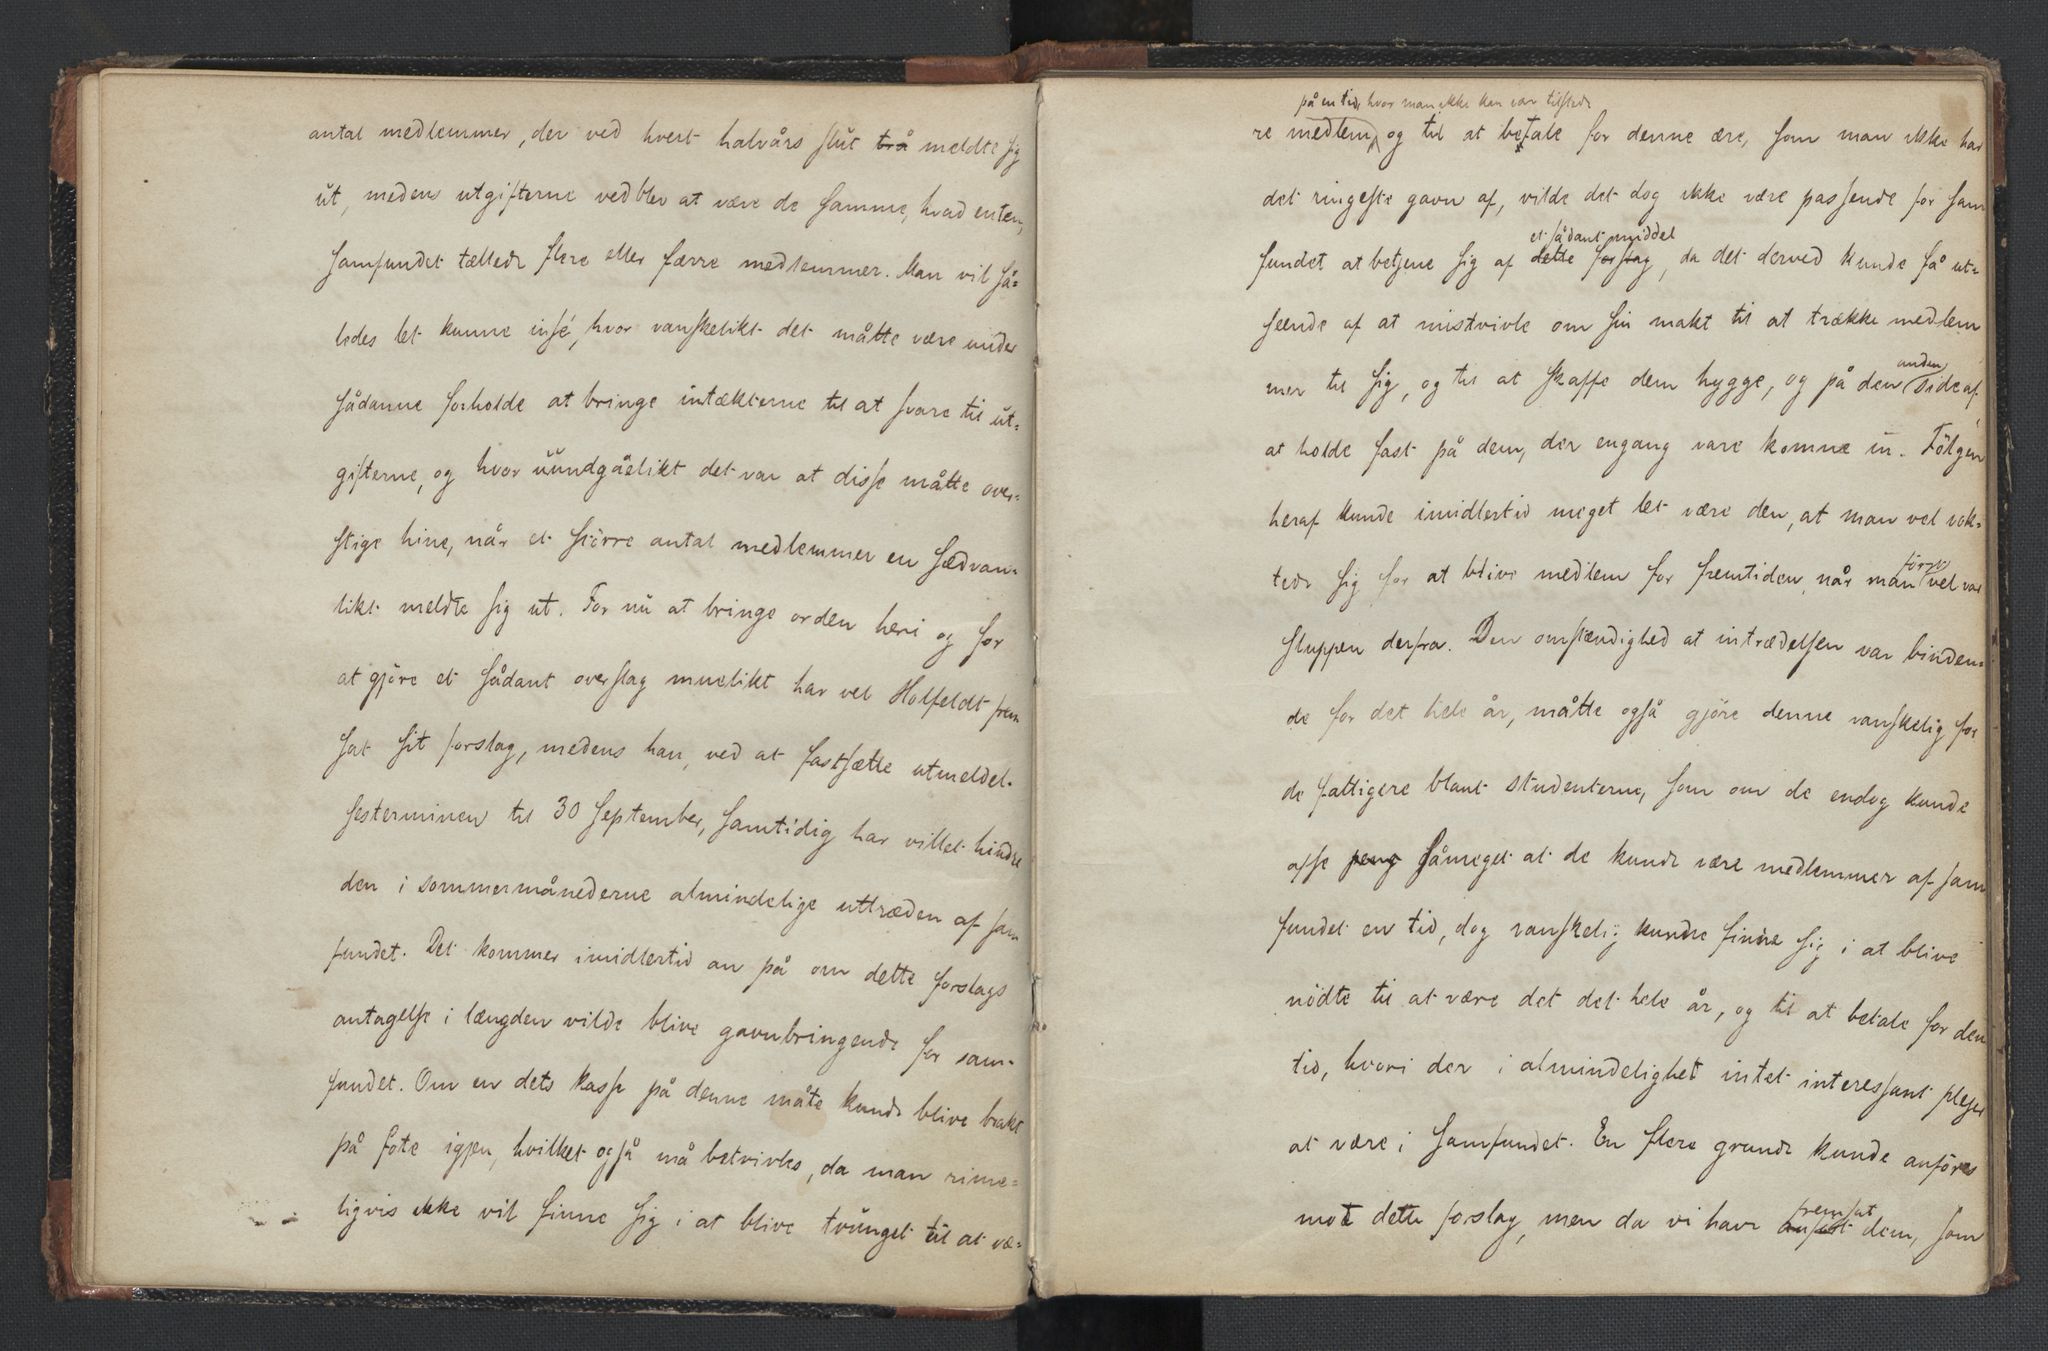 antal medlemmer, der ved hvert halvårs slut trå meldte sig
ut, medens utgifterne vedblev at være de samme, hvad enten,
samfundet tællede flere eller færre medlemmer. Man vil så-
ledes let kunne insé, hvor vanskelikt det måtte være under
sådanne forholde at bringe intækterne til at svare til ut-
gifterne, og hvor uundgåelikt det var at disse måtte over-
stige hine, når et större antal medlemmer en sædvan-
likt meldte sig ut. For nu at bringe orden heri og for
at gjöre et sådant overslag muelikt har vel Holfeldt frem
sat sit forslag, medens han, ved at fastsætte utmeldel-
sesterminen til 30 september, samtidig har villet hindre
den i sommermånederne almindelige uttræden af sam
fundet. Det kommer imidlertid an på om dette forslags
antagelse i længden vilde blive gavnbringende for sam-
fundet. Om en dets kasse på denne måte kunde blive brakt
på fote igjen, hvilket også må betvivles, da man rime-
ligvis ikke vil finne sig i at blive tvunget til at væ-
på en tid, hvor man ikke kan var tilstede
re medlem, og til at betale for denne ære, som man ikke har
det ringeste gavn af, vilde det dog ikke være passende for sam
et sådant middel
fundet at betjene sig af dette forslag, da det derved kunde få ut-
seende af at mistvivle om sin makt til at trække medlem
anden
mer til sig, og til at skaffe dem hygge, og på den side af
at holde fast på dem, der engang vare komne in. Fölgen
heraf kunde imidlertid meget let være den, at man vel vok-
först
tede sig for at blive medlem for fremtiden, når man vel var
sluppen derfra. Den omstændighed at intrædelsen var binden-
de for det hele år, måtte også gjöre denne vanskelig for
de fattigere blant studenterne, som om de endog kunde
afse peng såmeget at de kunde være medlemmer af sam
fundet en tid, dog vanskelig kunde finne sig i at blive
nödte til at være det det hele år, og til at betale for den
tid, hvori der i almindelighet intet interessant plejer
at være i samfundet. En flere grunde kunde anföres
fremsat
mot dette forslag, men da vi have anfört dem, som